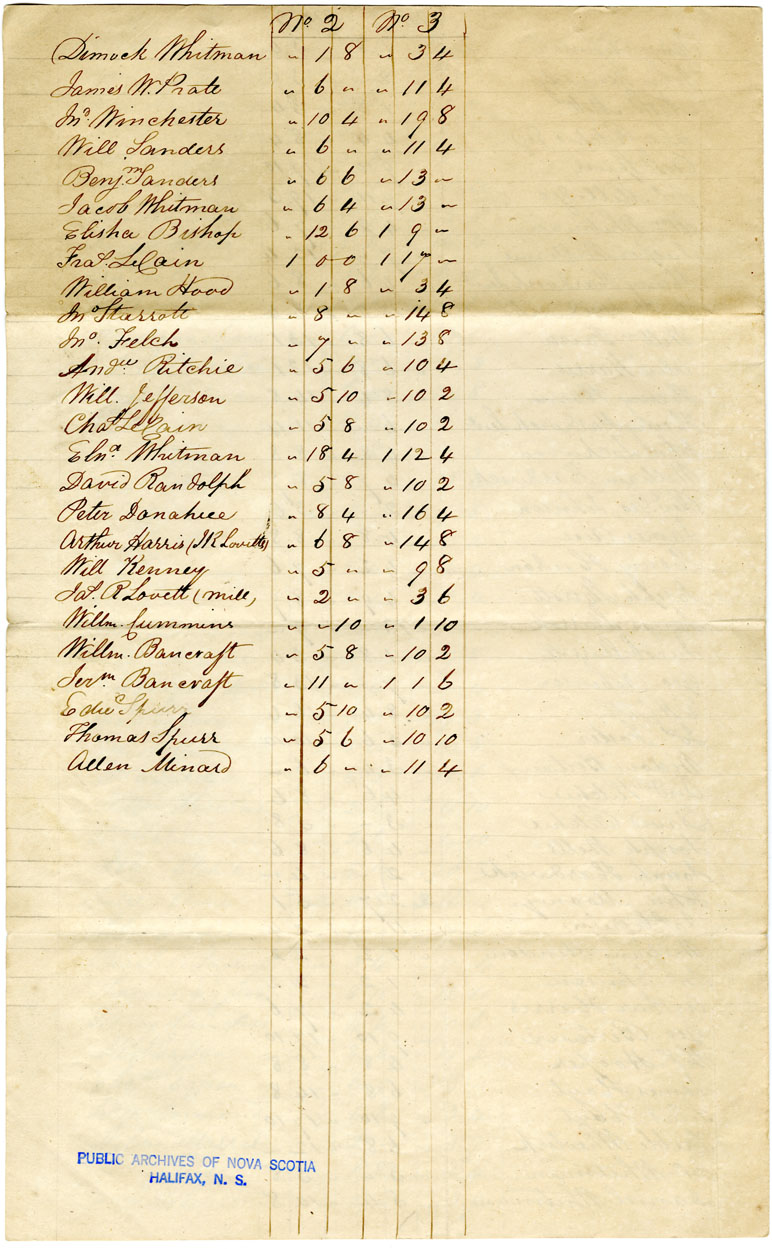 No. 2 No. 3
Dimock Whitman " 1 8 " 3 4
James W. Prate " 6 " " 11 4
Jno. Winchester " 10 4 " 19 8
Will Sanders " 6 " " 11 4
Benjm. Sanders " 6 6 " 13 "
Jacob Whitman " 6 4 " 13 "
Elisha Bishop " 12 6 1 9 "
Fras. LeCain 1 0 0 1 17 "
William Hood " 1 8 " 3 4
Jno Starrott " 8 " " 14 8
Jno. Felch " 7 " " 13 8
Andw Ritchie " 5 6 " 10 4
Will. Jefferson " 5 10 " 10 2
Chas. LeCain " 5 8 " 10 2
Elna. Whitman " 18 4 1 12 4
David Randolph " 5 8 " 10 2
Peter Donahue " 8 4 " 16 4
Arthur Harris (JR Lovitts) " 6 8 " 14 8
Will Kenney " 5 " " 9 8
Jas. R Lovett (mill) " 2 " " 3 6
Willm. Cummins " " 10 " 1 10
Willm. Bancraft " 5 8 " 10 2
Jerm. Bancraft " 11 " 1 1 6
Spurr " 5 10 " 10 2
Thomas Spurr " 5 6 " 10 10
Allen Minard " 6 " " 11 4
PUBLIC ARCHIVES OF NOVA SCOTIA
HALIFAX, N. S.